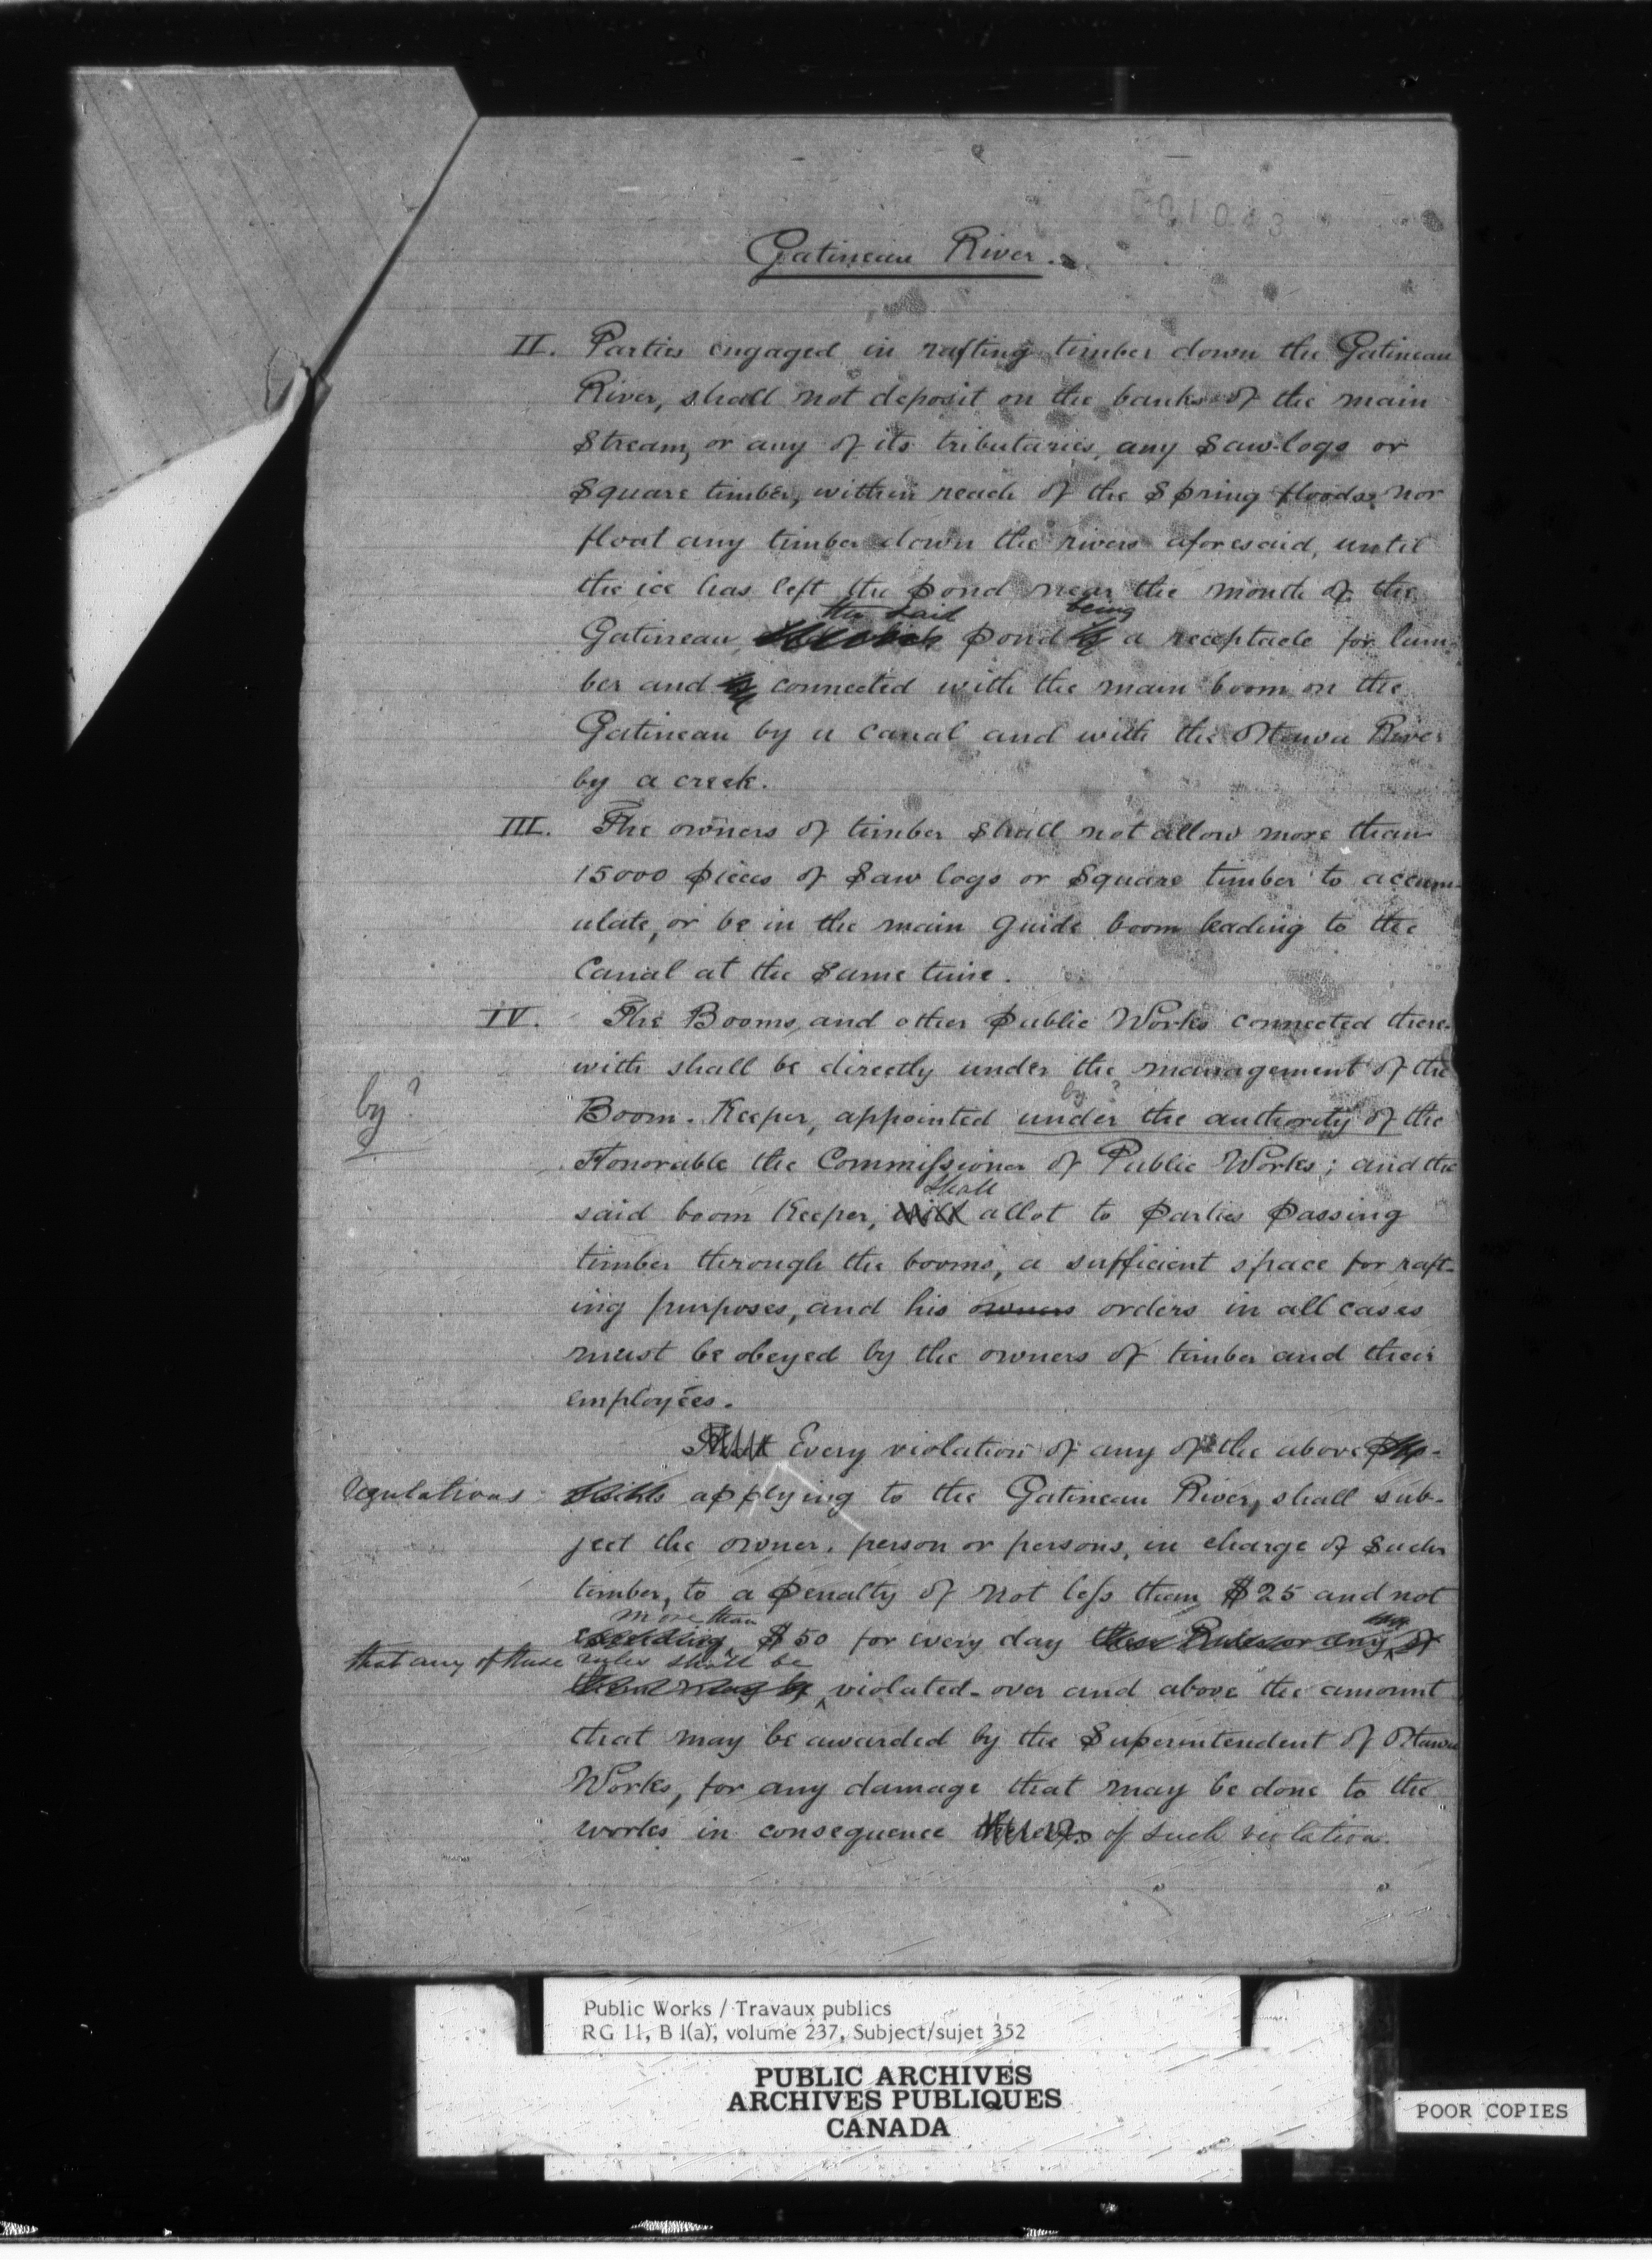 Gatineau River.
II. Parties engaged in rafting timber down the Gatineau
River, shall not deposit on the banks of the main
Stream, or any of its tributaries, any Saw-logs or
Square timber, within reach of the Spring floods, nor
float any timber down the rivers aforesaid, until
the ice has left the pond near the mouth of the
the said being
Gatineau, pond a receptacle for lum-
ber and connected with the main boom on the
Gatineau by a canal and with the Ottawa River
by a creek.
III. The owners of timber shall not allow more than
15000 pieces of Saw logs or Square timber to accum-
ulate, or be in the main guide boom leading to the
Canal at the same time.
IV. The Booms, and other Public Works connected there-
with shall be directly under the management of the
by? by?
Boom-Keeper, appointed under the authority of the
Honorable the Commissioner of Public Works; and the
shall
said boom Keeper, will allot to parties passing
timber through the booms, a sufficient space for raft-
ing purposes, and his owners orders in all cases
must be obeyed by the owners of timber and their
employées.
That Every violation of any of the above
regulations applying to the Gatineau River, shall sub-
ject the owner, person or persons, in charge of such
timber, to a penalty of not less than $25 and not
more than
exceeding $50 for every day these Rules or any of
that any of these rules shall be
them may be violated - over and above the amount
that may be awarded by the Superintendent of Ottawa
Works, for any damage that may be done to the
works in consequence thereof. of such violation.
Public Works / Travaux publics
RG 11, B 1(a), volume 237, Subject/sujet 352
PUBLIC ARCHIVES
ARCHIVES PUBLIQUES
CANADA
POOR COPIES